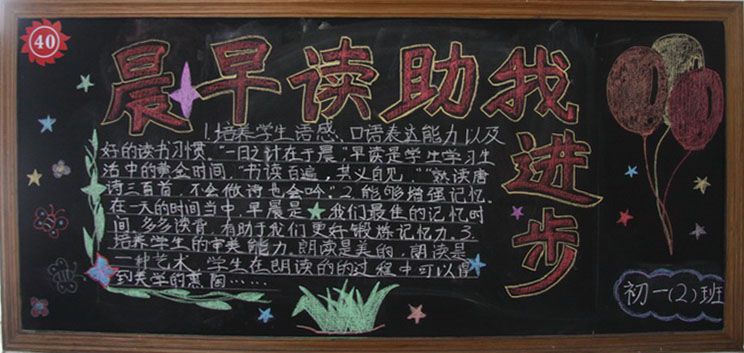 40
晨早读助我进步
1.培养学生语感、口语表达能力以及
好的读书习惯。"一日之计在于晨",早读是学生学习生
活中的黄金时间。"书读百遍,其义自见。""熟读唐
诗三百首,不会做诗也会吟。"2.能够增强记忆。
在一天的时间当中,早晨是我们最佳的记忆时
间,多多读背,有助于我们更好锻炼记忆力。3.
培养学生的审美能力。朗读是美的,朗读是
一种艺术。学生在朗读的的过程中可以得
到美学的熏陶……
初一(2)班